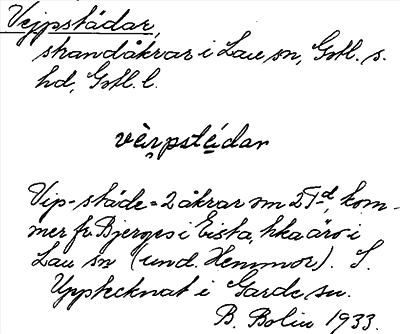 Vejpstädar,
strandåkrar i Lau sn, Gotl. s.
hd, Gotl. l.
vèrpstédar
Vip-städe = 2 åkrar om 2 T:d, kom-
mer fr. Bjerges i Eista, hka äro i
Lau sn (und. Hemmor). S.
Upptecknat i Garde sn.
B. Bolin 1933.